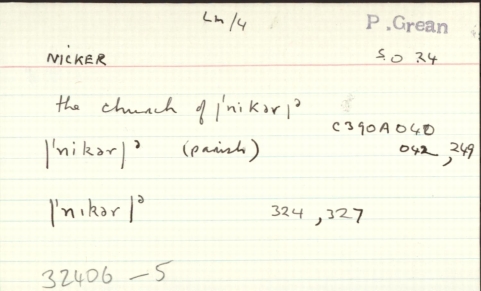 Ln/4
P. Grean
NICKER
S.O 34
the church of |ˈnikər|ᵊ
C390A040
|ˈnikər|ᵊ (parish) 042, 249
|ˈnıkər|ᵊ 324, 327
32406-5